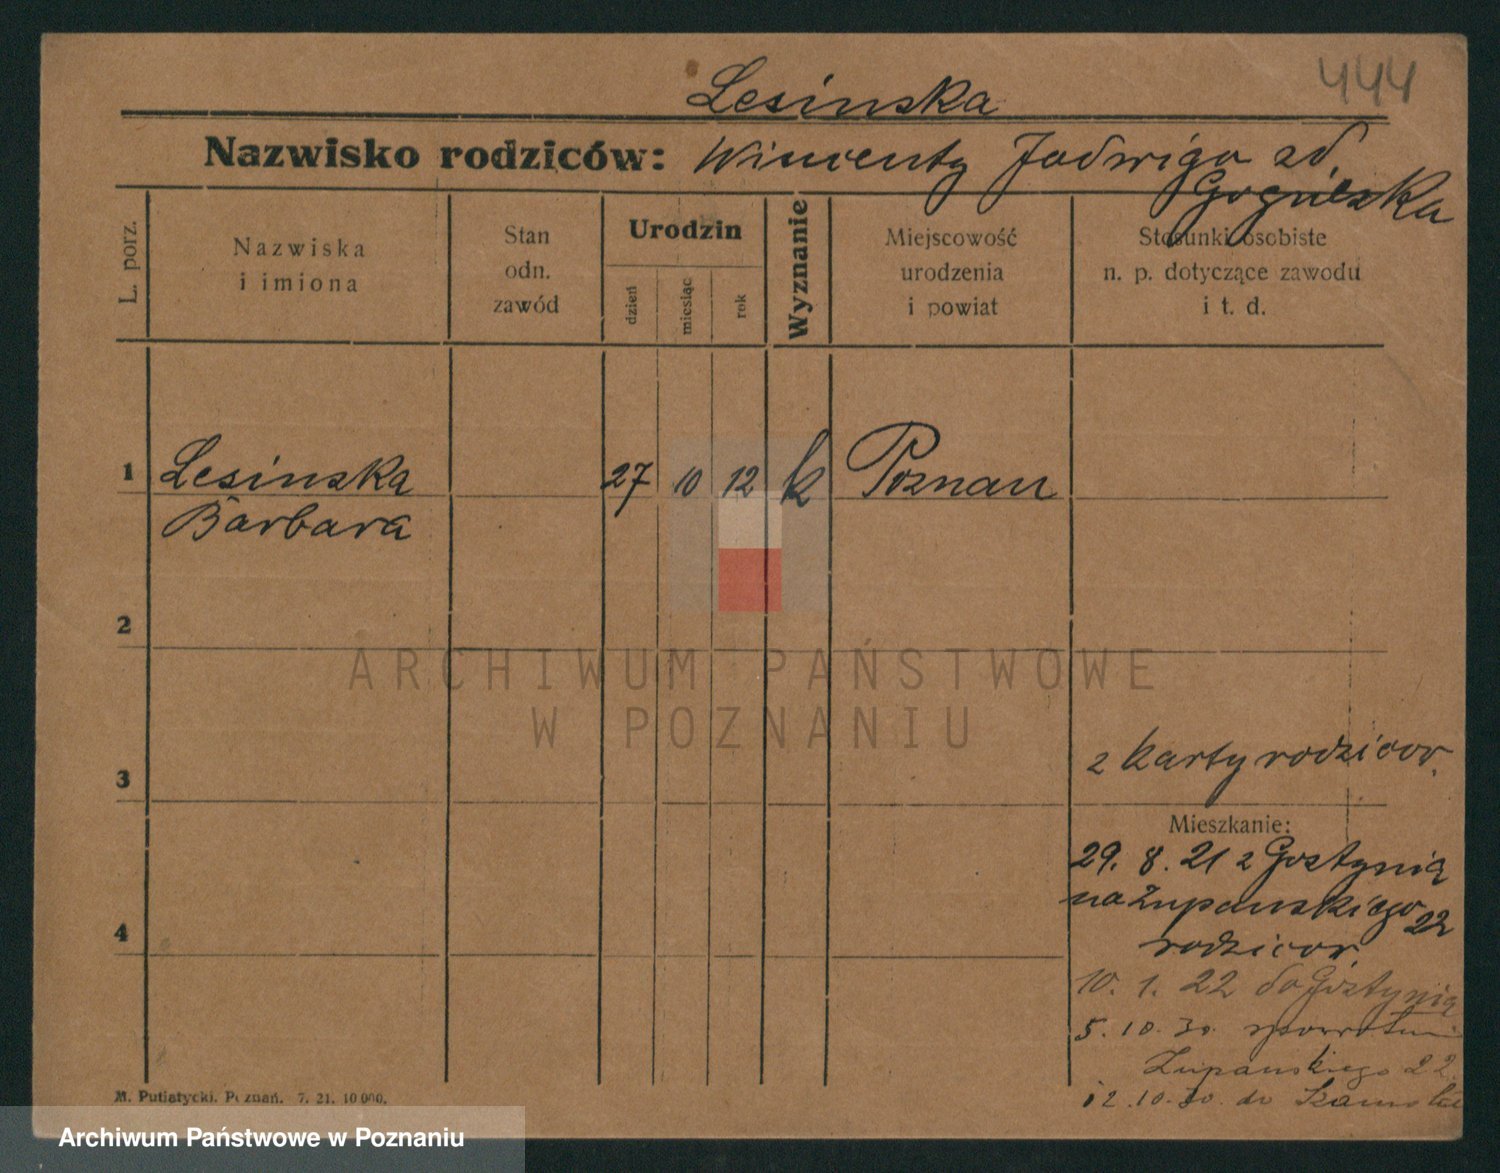 444
Lesinska
Nazwisko rodziców: Wincenty Jadwiga zd.
L. porz.
Nazwiska
i imiona
Stan
odn.
zawód
Urodzin
dzień
miesiąc
rok
Wyznanie
Miejscowość
urodzenia
i powiat
Stosunki osobiste
n. p. dotyczące zawodu
i t. d.
1 Lesinska 27 10 12 k Poznan
Barbara
2
ARCHIWUM PAŃSTWOWE
W POZNANIU
3
z karty rodzicow.
Mieszkanie:
29. 8. 21 z Gostynia
na Zupanskiego 22
4
rodzicow.
10. 1. 22 do Gostynia
5. 10. 30.
Zupanskiego 22.
12. 10. 30. do
M. Putiatycki. Poznań. 7. 21. 10 000.
Archiwum Państwowe w Poznaniu